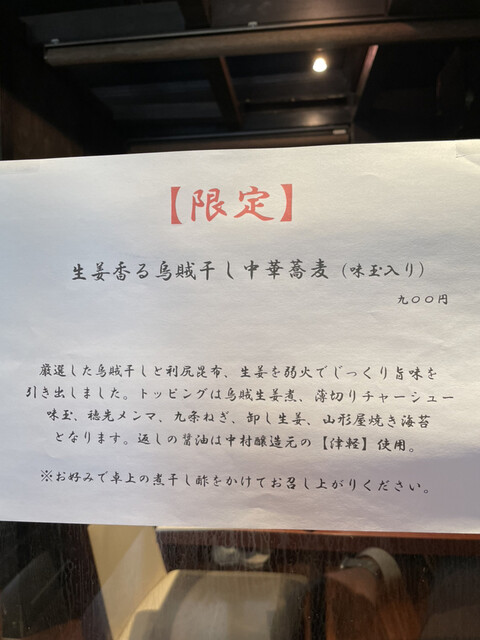 【限定】
生姜香る烏賊干し中華蕎麦（味玉入り）
九〇〇円
厳選した烏賊干しと利尻昆布、生姜を弱火でじっくり旨味を
引き出しました。トッピングは烏賊生姜煮、薄切りチャーシュー
味玉、穂先メンマ、九条ねぎ、卸し生姜、山形屋焼き海苔
となります。返しの醤油は中村醸造元の【津軽】使用。
※お好みで卓上の煮干し酢をかけてお召し上がりください。